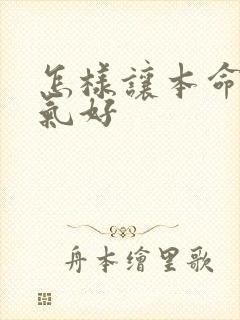 怎樣讓本命
氣好
舟本繪里歌